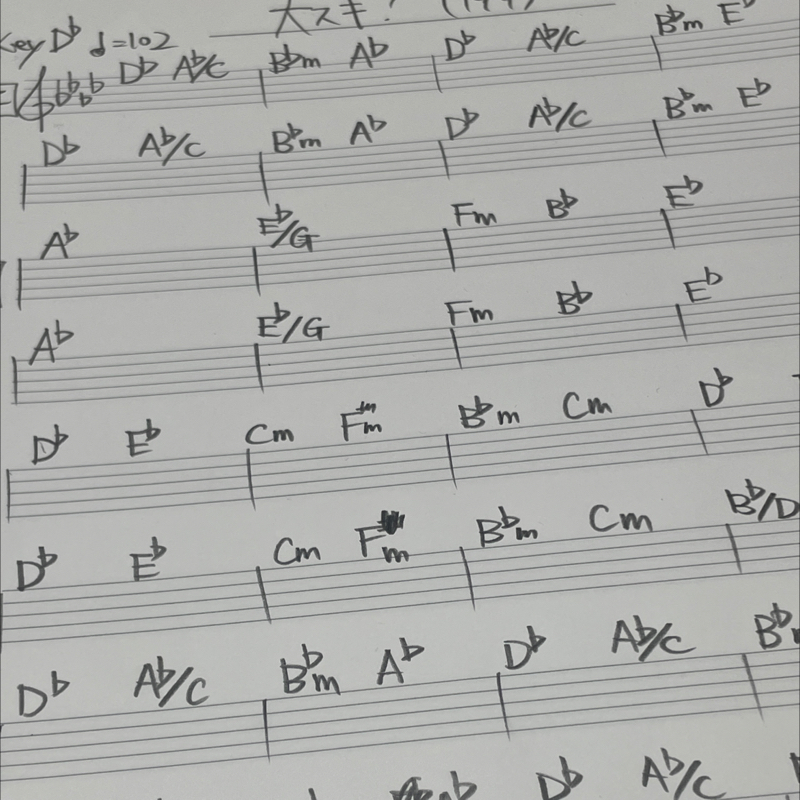 大スキ!
Key D♭ ♩=102
D♭ A♭/C B♭m A♭ D♭ A♭/C B♭m E♭
D♭ A♭/C B♭m A♭ D♭ A♭/C B♭m E♭
A♭ E♭/G Fm B♭ E♭
A♭ E♭/G Fm B♭ E♭
D♭ E♭ Cm Fm B♭m Cm D♭
D♭ E♭ Cm Fm B♭m Cm B♭/D
D♭ A♭/C B♭m A♭ D♭ A♭/C B♭m
D♭ A♭/C